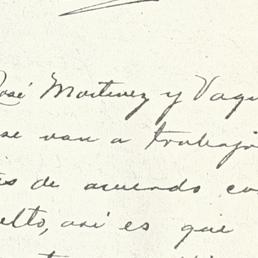 José Martinez y Vaqu
se van a trabaja
es de acuerdo co
elto, asi es que